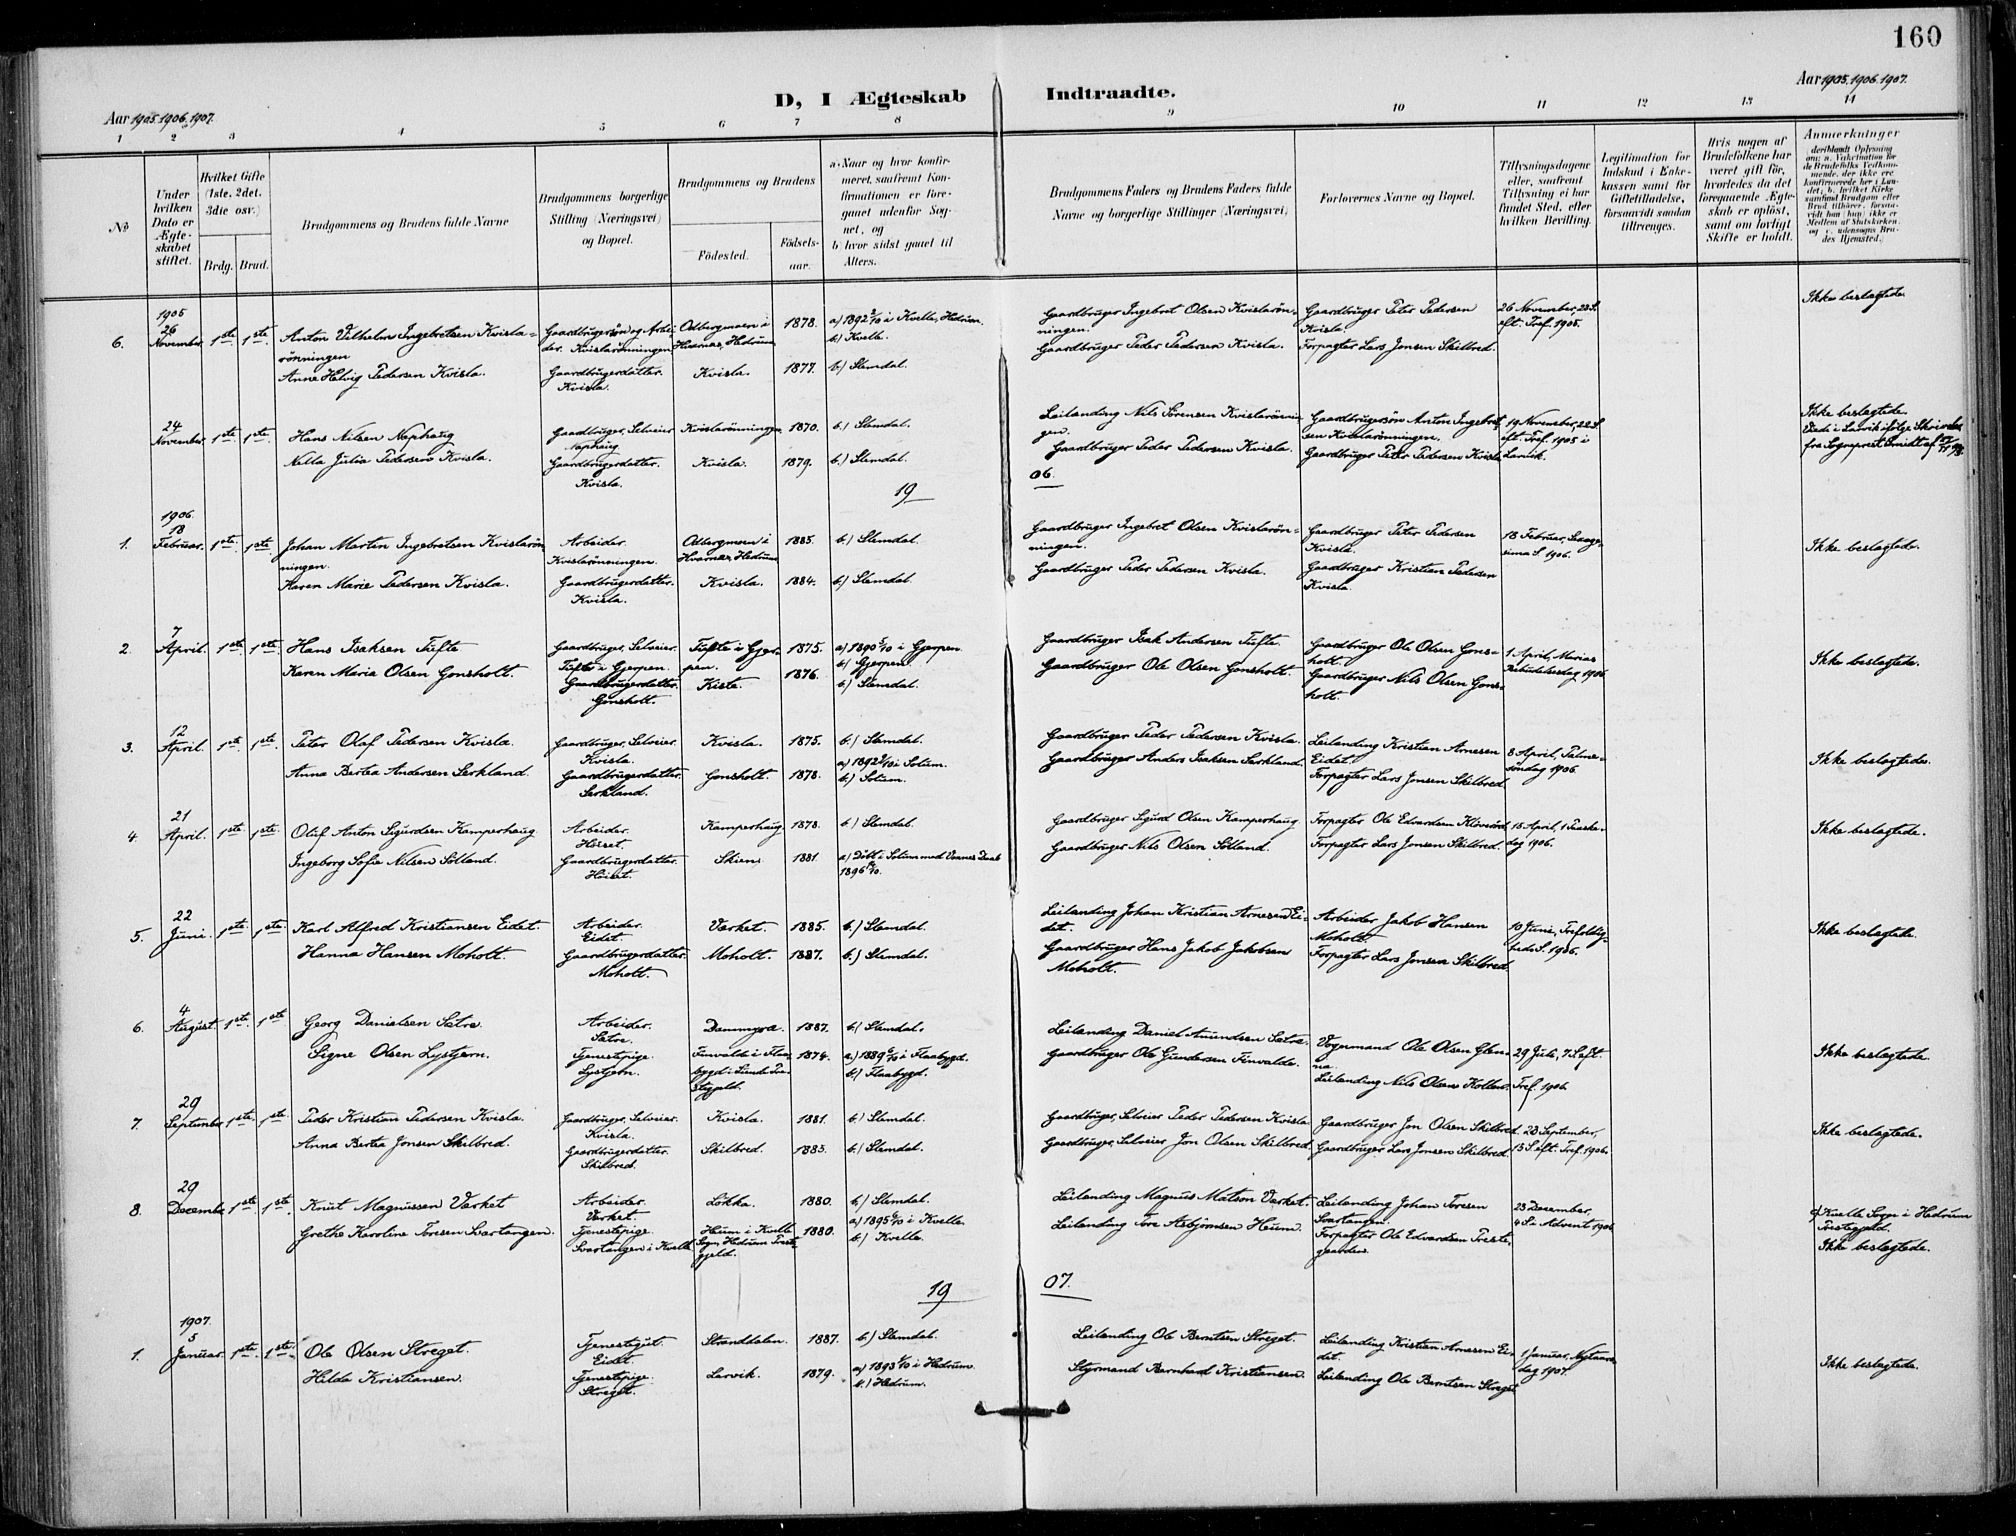 160
D, I Ægteskab Indtraadte.
Aar 1905. 1906. 1907.
Aar 1905. 1906. 1907.
1 2 3 4 5 6 7 8 9 10 11 12 13 14
No
Under hvilken Dato er Ægteskabet stiftet.
Hvilket Gifte (1ste, 2det, 3die osv.)
Brdg. Brud.
Brudgommens og Brudens fulde Navne
Brudgommens borgerlige Stilling (Næringsvei) og Bopæl.
Brudgommens og Brudens
Födested.
Födsels-aar.
a. Naar og hvor konfirmeret, saafremt Konfirmationen er foregaaet udenfor Sognet, og
b) hvor sidst gaaet til Alters.
Brudgommens Faders og Brudens Faders fulde Navne og borgerlige Stillinger (Næringsvei)
Forlovernes Navne og Bopæl.
Tillysningsdagene eller, saafremt Tillysning ei har fundet Sted, efter hvilken Bevilling.
Legitimation for Indskud i Enkekassen samt for Giftetilladelse, forsaavidt saadan tiltrænges.
Hvis nogen af Brudefolkene har været gift før, hvorledes da det foregaaende Ægteskab er opløst, samt om lovligt Skifte er holdt.
Anmærkninger
6. 1905 26 November. 1ste. 1ste.
Anton Vilhelm Ingebretsen Kvislarönningen
Gaardbrugersön og Arbeider. Kvislarönningen
Odbergmoen i Hvarnes, Hedrum
1878.
a) 1892 2/10 i Kvelle, Hedrum.
b.) Kvelle.
Gaardbruger Ingebret Olsen Kvislarönningen.
Gaardbruger Peter Pedersen Kvisla.
26 November, 23 S. eft. Tref. 1905.
Ikke beslægtede.
Anne Helvig Pedersen Kvisla.
Gaardbrugerdatter. Kvisla.
Kvisla.
1877.
b.) Slemdal.
Gaardbruger Peder Pedersen Kvisla.
Forpagter Lars Jonsen Skilbred.
24 November. 1ste. 1ste.
Hans Nilsen Naphaug
Gaardbruger, Selveier Naphaug
Kvislarönningen
1870.
b.) Slemdal.
Leilending Nils Sörensen Kvislarönningen.
Gaardbrugersön Anton Ingebretsen Kvislarönningen.
19 November, 22 S. eft. Tref. 1905 i Larvik.
Ikke beslægtede.
Viede i Larvik ifølge Skrivelse fra Sogneprest Smidt af
Nella Julia Pedersen Kvisla.
Gaardbrugerdatter. Kvisla.
Kvisla.
1879.
b.) Slemdal.
Gaardbruger Peder Pedersen Kvisla.
Gaardbruger Peter Pedersen Kvisla
19 06.
1. 1906. 18 Februar. 1ste. 1ste.
Johan Martin Ingebretsen Kvislarönningen.
Arbeider. Kvislarönningen.
Odbergmoen i Hvarnes, Hedrum
1883.
b.) Slemdal.
Gaardbruger Ingebret Olsen Kvislarönningen.
Gaardbruger Peter Pedersen Kvisla.
18 Februar, Sexagesima S. 1906.
Ikke beslægtede.
Karen Marie Pedersen Kvisla.
Gaardbrugerdatter. Kvisla.
Kvisla.
1884.
b.) Slemdal.
Gaardbruger Peder Pedersen Kvisla.
Gaardbruger Kristian Pedersen Kvisla.
2. 7 April. 1ste. 1ste.
Hans Isaksen Tufte
Gaardbruger, Selveier. Tufte i Gjerpen.
Tufte i Gjerpen.
1875.
a) 1890 5/10 i Gjerpen.
b.) Gjerpen.
Gaardbruger Isak Andersen Tufte.
Gaardbruger Ole Olsen Gonsholt.
1 April, Marias Bebudelsesdag 1906.
Ikke beslægtede.
Karen Maria Olsen Gonsholt.
Gaardbrugerdatter. Gonsholt.
Kiste.
1876.
b.) Slemdal.
Gaardbruger Ole Olsen Gonsholt.
Gaardbruger Nils Olsen Gonsholt.
3. 12 April. 1ste. 1ste.
Peter Olaf Pedersen Kvisla.
Gaardbruger, Selveier. Kvisla.
Kvisla.
1875.
b.) Slemdal.
Gaardbruger Peder Pedersen Kvisla.
Leilending Kristian Arnesen Eidet.
8 April, Palmesöndag 1906.
Ikke beslægtede.
Anna Bertea Andersen Serkland.
Gaardbrugerdatter. Serkland.
Gonsholt.
1878.
a) 1892 2/10 i Solum.
b.) Solum.
Gaardbruger Anders Isaksen Serkland.
Forpagter Lars Jonsen Skilbred
4. 21 April. 1ste. 1ste.
Oluf Anton Sigurdsen Kamperhaug
Arbeider. Höiset.
Kamperhaug
1878.
b.) Slemdal.
Gaardbruger Sigurd Olsen Kamperhaug
Forpagter Ole Edvardsen Kloverød
15 April, 1 Paaskedag 1906.
Ikke beslægtede.
Ingeborg Sofie Nilsen Sölland.
Gaardbrugerdatter. Höiset.
Skien.
1881.
Gaardbruger Nils Olsen Sölland.
Forpagter Lars Jonsen Skilbred.
5. 22 Juni. 1ste. 1ste.
Karl Alfred Kristiansen Eidet.
Arbeider. Eidet.
Værket.
1885.
b.) Slemdal.
Leilending Johan Kristian Arnesen Eidet.
Arbeider Jakob Hansen Moholt.
10 Juni, Trefoldigheds S. 1906.
Ikke beslægtede.
Hanna Hansen Moholt.
Gaardbrugerdatter. Moholt.
Moholt.
1887.
b.) Slemdal.
Gaardbruger Hans Jakob Jakobsen Moholt.
Forpagter Lars Jonsen Skilbred
6. 4 August. 1ste. 1ste.
Georg Danielsen Sætre
Arbeider. Sætre.
Dammyra.
1887.
b.) Slemdal.
Leilending Daniel Amundsen Sætre.
Vognmand Ole Olsen Glenna.
29 Juli, 7 S. eft. Tref. 1906.
Ikke beslægtede.
Signe Olsen Lystjern.
Tjenestepige. Lystjern.
1874.
a.) 1889 6/10 i Flaabygd.
b.) Flaabygd.
Gaardbruger Ole Gundersen Finvolde.
Leilending Nils Olsen Kollen.
7. 29 September. 1ste. 1ste.
Peder Kristian Pedersen Kvisla.
Gaardbruger, Selveier. Kvisla.
Kvisla.
1881.
b.) Slemdal.
Gaardbruger, Selveier Peder Pedersen Kvisla
Gaardbruger Jon Olsen Skilbred
23 September, 15 S. eft. Tref. 1906.
Ikke beslægtede.
Anna Bertea Jonsen Skilbred.
Gaardbrugerdatter. Skilbred.
Skilbred.
1883.
b.) Slemdal.
Gaardbruger, Selveier Jon Olsen Skilbred
Gaardbruger Lars Jonsen Skilbred.
8. 29 December 1ste. 1ste.
Knut Magnussen Værket
Arbeider. Værket.
Lökka.
1880.
b.) Slemdal.
Leilending Magnus Matson Værket.
Leilending Johan Toresen Svartangen.
23 December, 4 S. i Advent 1906
Kvelle Sogn i Hedrum Prestegjeld.
Ikke beslægtede.
Grethe Karoline Toresen Svartangen.
Tjenestepige. Svartangen i Kvelle
Heum i Kvelle Sogn, Hedrum Prestegjeld.
1880.
a) 1895 6/10 i Kvelle.
b.) Kvelle.
Leilending Tore Asbjörnsen Heum.
Forpagter Ole Edvardsen Prestegaarden.
19 07.
1. 1907. 5 Januar. 1ste. 1ste.
Ole Olsen Streget.
Tjenestegut. Eidet.
Stranddalen.
1887.
b.) Slemdal.
Leilending Ole Berntsen Streget.
Leilending Kristian Arnesen Eidet.
1 Januar, Nytaarsdag 1907.
Ikke beslægtede.
Hilda Kristiansen.
Tjenestepige. Streget.
Larvik.
1879.
a) 1893 1/10 i Hedrum.
b.) Hedrum.
Styrmand Bernhard Kristiansen.
Leilending Ole Berntsen Streget